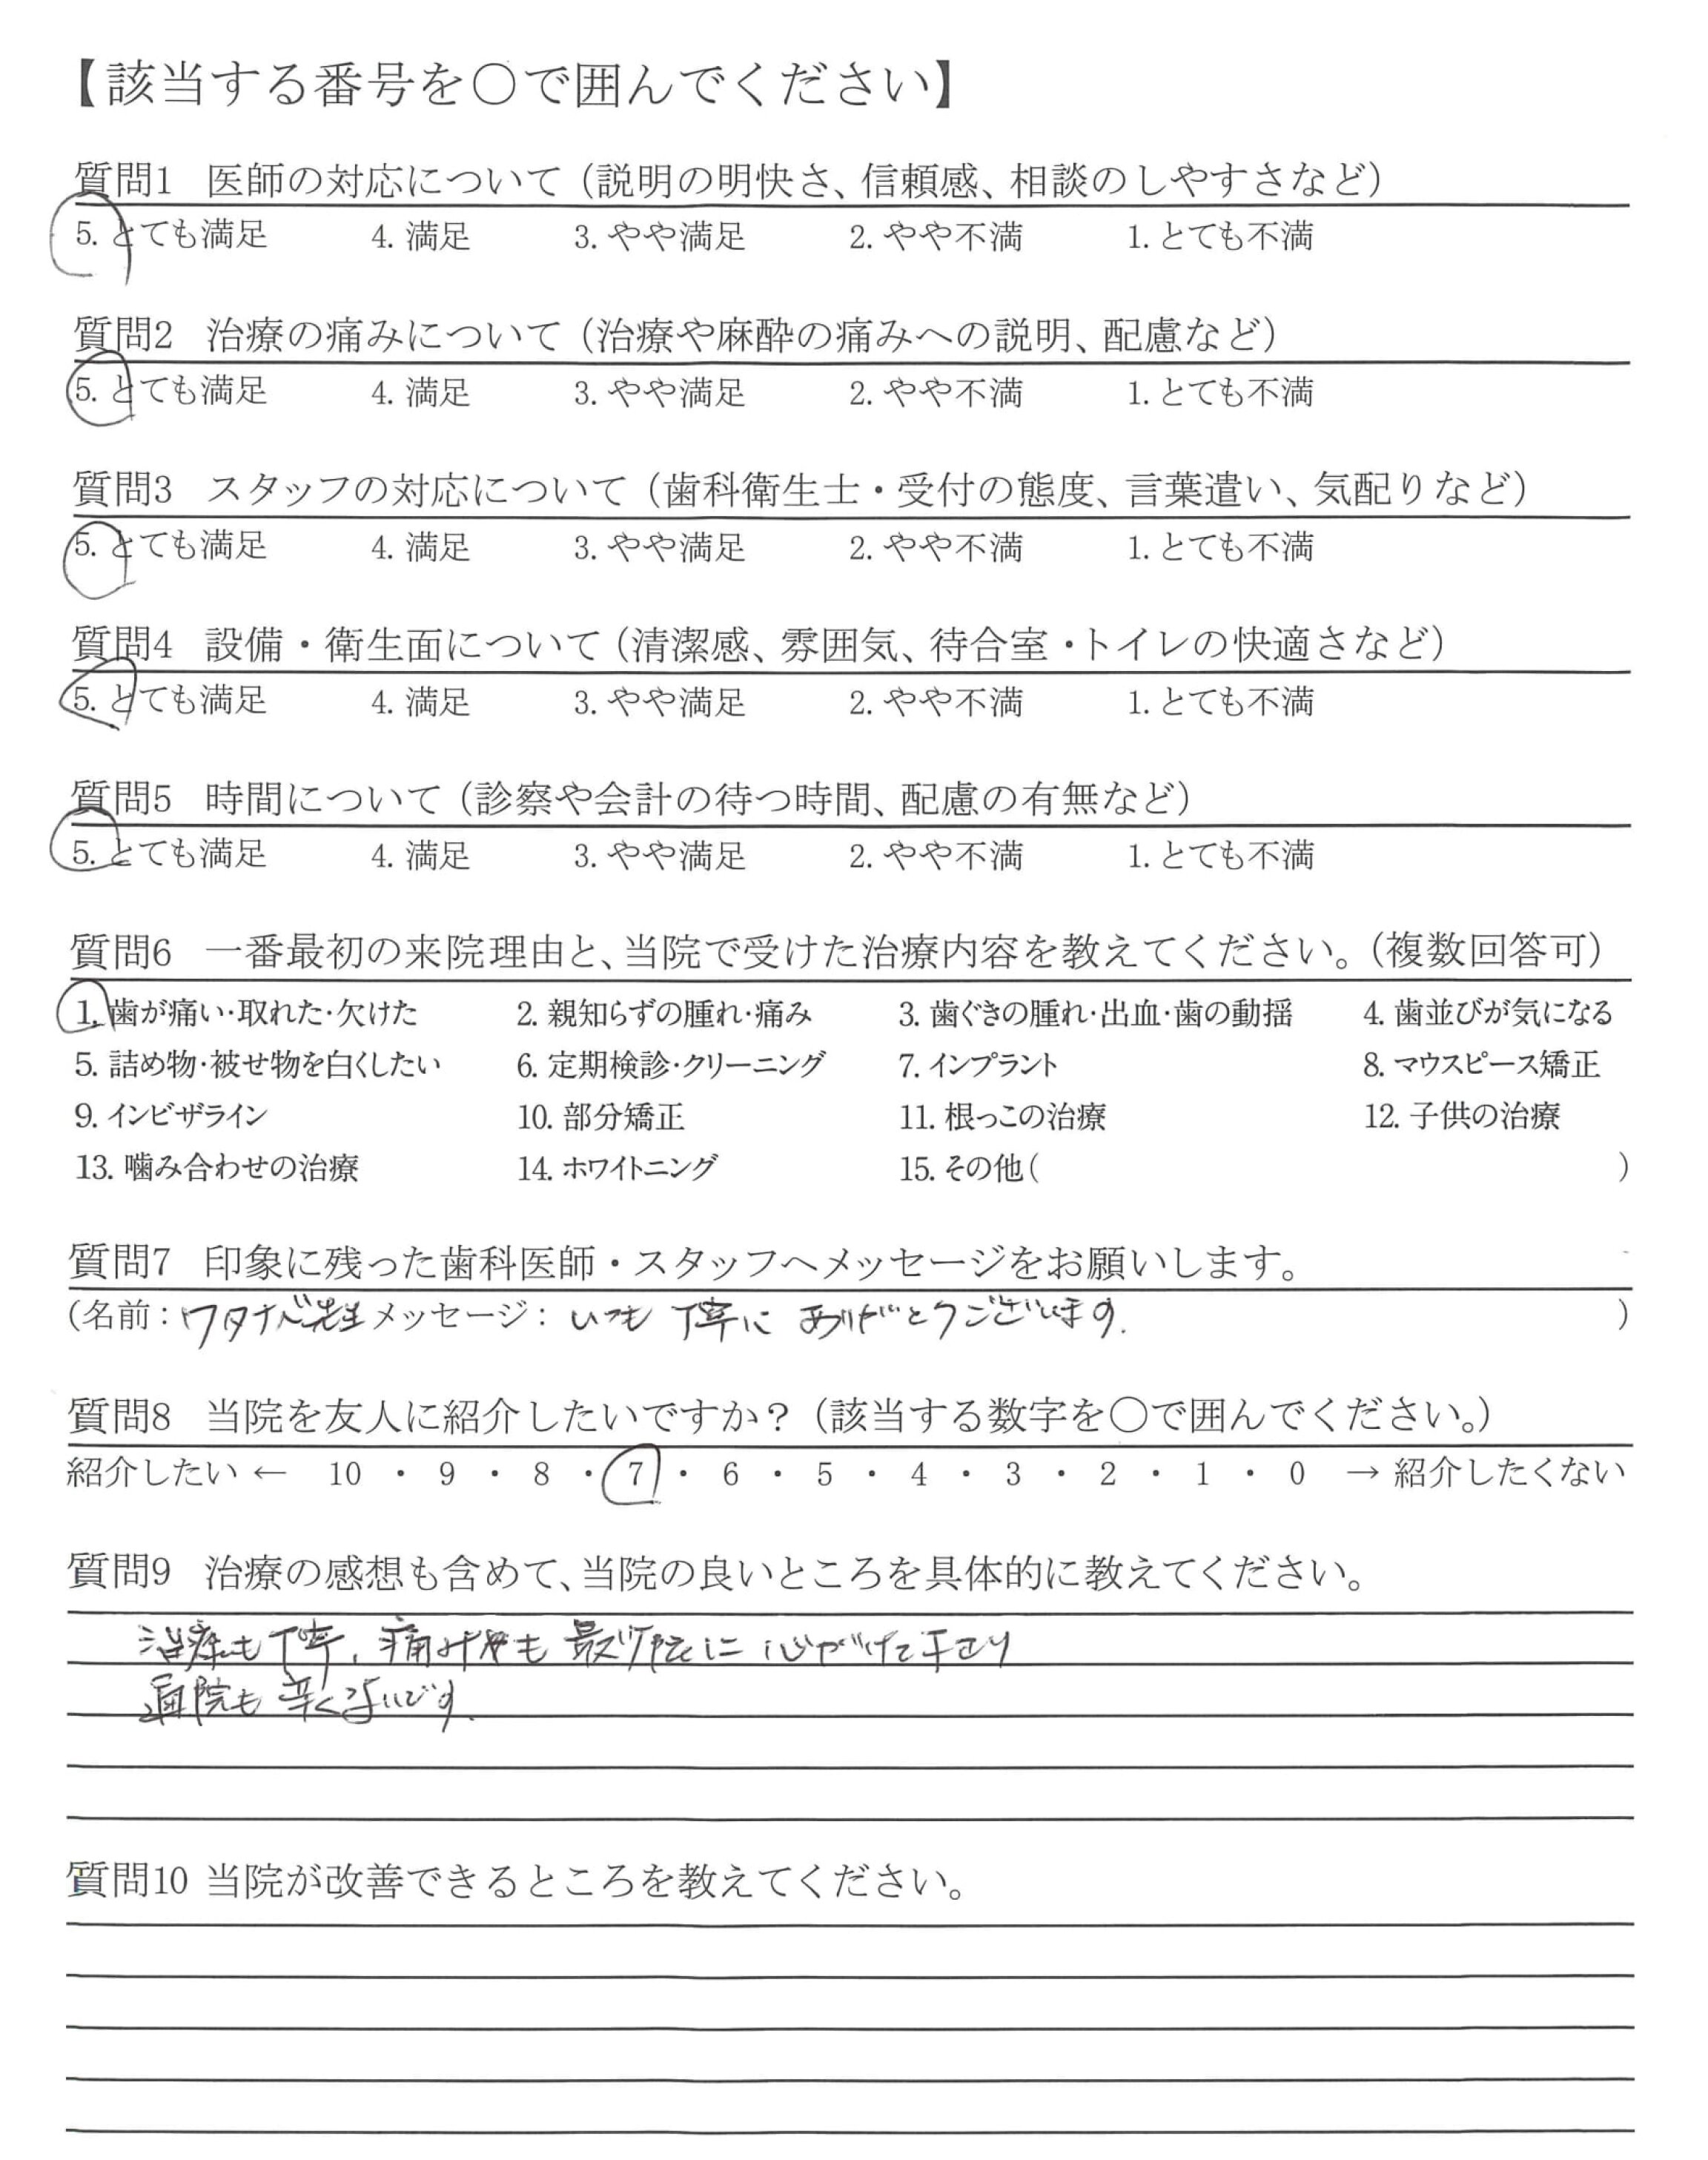 【該当する番号を○で囲んでください】
質問1 医師の対応について（説明の明快さ、信頼感、相談のしやすさなど）
5. とても満足 4. 満足 3. やや満足 2. やや不満 1. とても不満
質問2 治療の痛みについて（治療や麻酔の痛みへの説明、配慮など）
5. とても満足 4. 満足 3. やや満足 2. やや不満 1. とても不満
質問3 スタッフの対応について（歯科衛生士・受付の態度、言葉遣い、気配りなど）
5. とても満足 4. 満足 3. やや満足 2. やや不満 1. とても不満
質問4 設備・衛生面について（清潔感、雰囲気、待合室・トイレの快適さなど）
5. とても満足 4. 満足 3. やや満足 2. やや不満 1. とても不満
質問5 時間について（診察や会計の待つ時間、配慮の有無など）
5. とても満足 4. 満足 3. やや満足 2. やや不満 1. とても不満
質問6 一番最初の来院理由と、当院で受けた治療内容を教えてください。（複数回答可）
1. 歯が痛い・取れた・欠けた 2. 親知らずの腫れ・痛み 3. 歯ぐきの腫れ・出血・歯の動揺 4. 歯並びが気になる
5. 詰め物・被せ物を白くしたい 6. 定期検診・クリーニング 7. インプラント 8. マウスピース矯正
9. インビザライン 10. 部分矯正 11. 根っこの治療 12. 子供の治療
13. 噛み合わせの治療 14. ホワイトニング 15. その他（ ）
質問7 印象に残った歯科医師・スタッフへメッセージをお願いします。
（名前：ワタナベ先生 メッセージ：いつも 丁寧に ありがとうございます. ）
質問8 当院を友人に紹介したいですか？（該当する数字を○で囲んでください。）
紹介したい ← 10 ・ 9 ・ 8 ・ 7 ・ 6 ・ 5 ・ 4 ・ 3 ・ 2 ・ 1 ・ 0 → 紹介したくない
質問9 治療の感想も含めて、当院の良いところを具体的に教えてください。
治療も丁寧、痛み も 最小限に 心がけて下さり
通院も 辛くないです.
質問10 当院が改善できるところを教えてください。